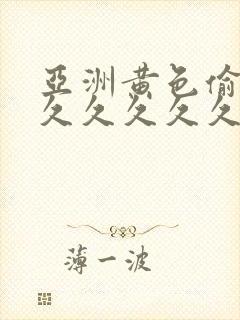 亞洲黄色偷
久久久久久
薄一波